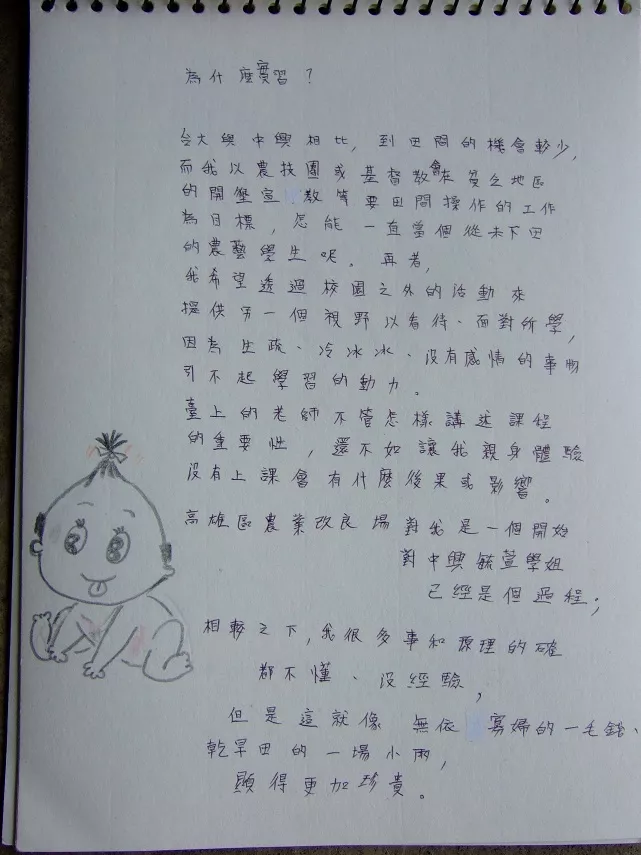 為什麼實習？
台大與中興相比，到田間的機會較少，
而我以農技團或基督教會在貧乏地區
的開墾宣教等要田間操作的工作
為目標，怎能一直當個從未下田
的農藝學生呢。再者，
我希望透過校園之外的活動來
提供另一個視野以看待、面對所學，
因為生疏、冷冰冰、沒有感情的事物
引不起學習的動力。
臺上的老師不管怎樣講述課程
的重要性，還不如讓我親身體驗
沒有上課會有什麼後果或影響。
高雄區農業改良場對我是一個開始
對中興毓萱學姐
已經是個過程；
相較之下，我很多事和原理的確
都不懂、沒經驗，
但是這就像無依寡婦的一毛錢、
乾旱田的一場小雨，
顯得更加珍貴。